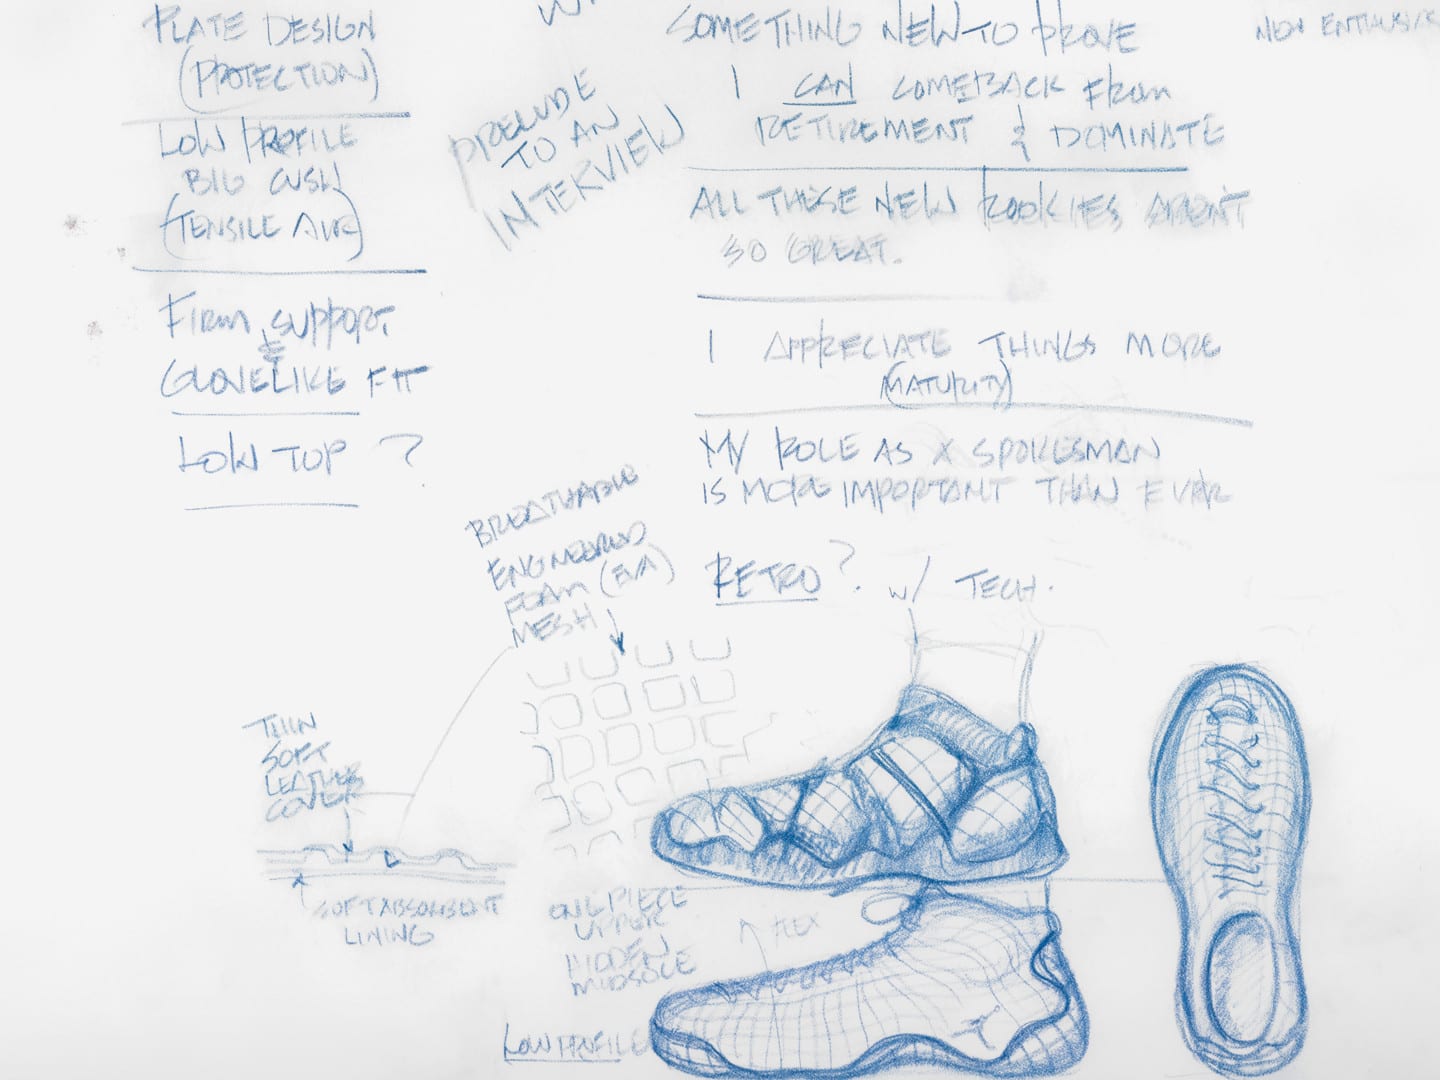 PLATE DESIGN
(PROTECTION)
LOW PROFILE
BIG CUSH
(TENSILE AIR)
FIRM SUPPORT
&
GLOVELIKE FIT
LOW TOP ?
PRELUDE
TO AN
INTERVIEW
SOMETHING NEW TO PROVE
I CAN COMEBACK FROM
RETIREMENT & DOMINATE
ALL THESE NEW ROOKIES AREN'T
SO GREAT.
I APPRECIATE THINGS MORE
(MATURITY)
MY ROLE AS A SPOKESMAN
IS MORE IMPORTANT THAN EVER
RETRO? W/ TECH.
BREATHABLE
ENGINEERED
FOAM (EVA)
MESH
THIN
SOFT
LEATHER
COVER
SOFT ABSORBENT
LINING
ONE PIECE
UPPER
HIDDEN
MIDSOLE
FLEX
LOW PROFILE